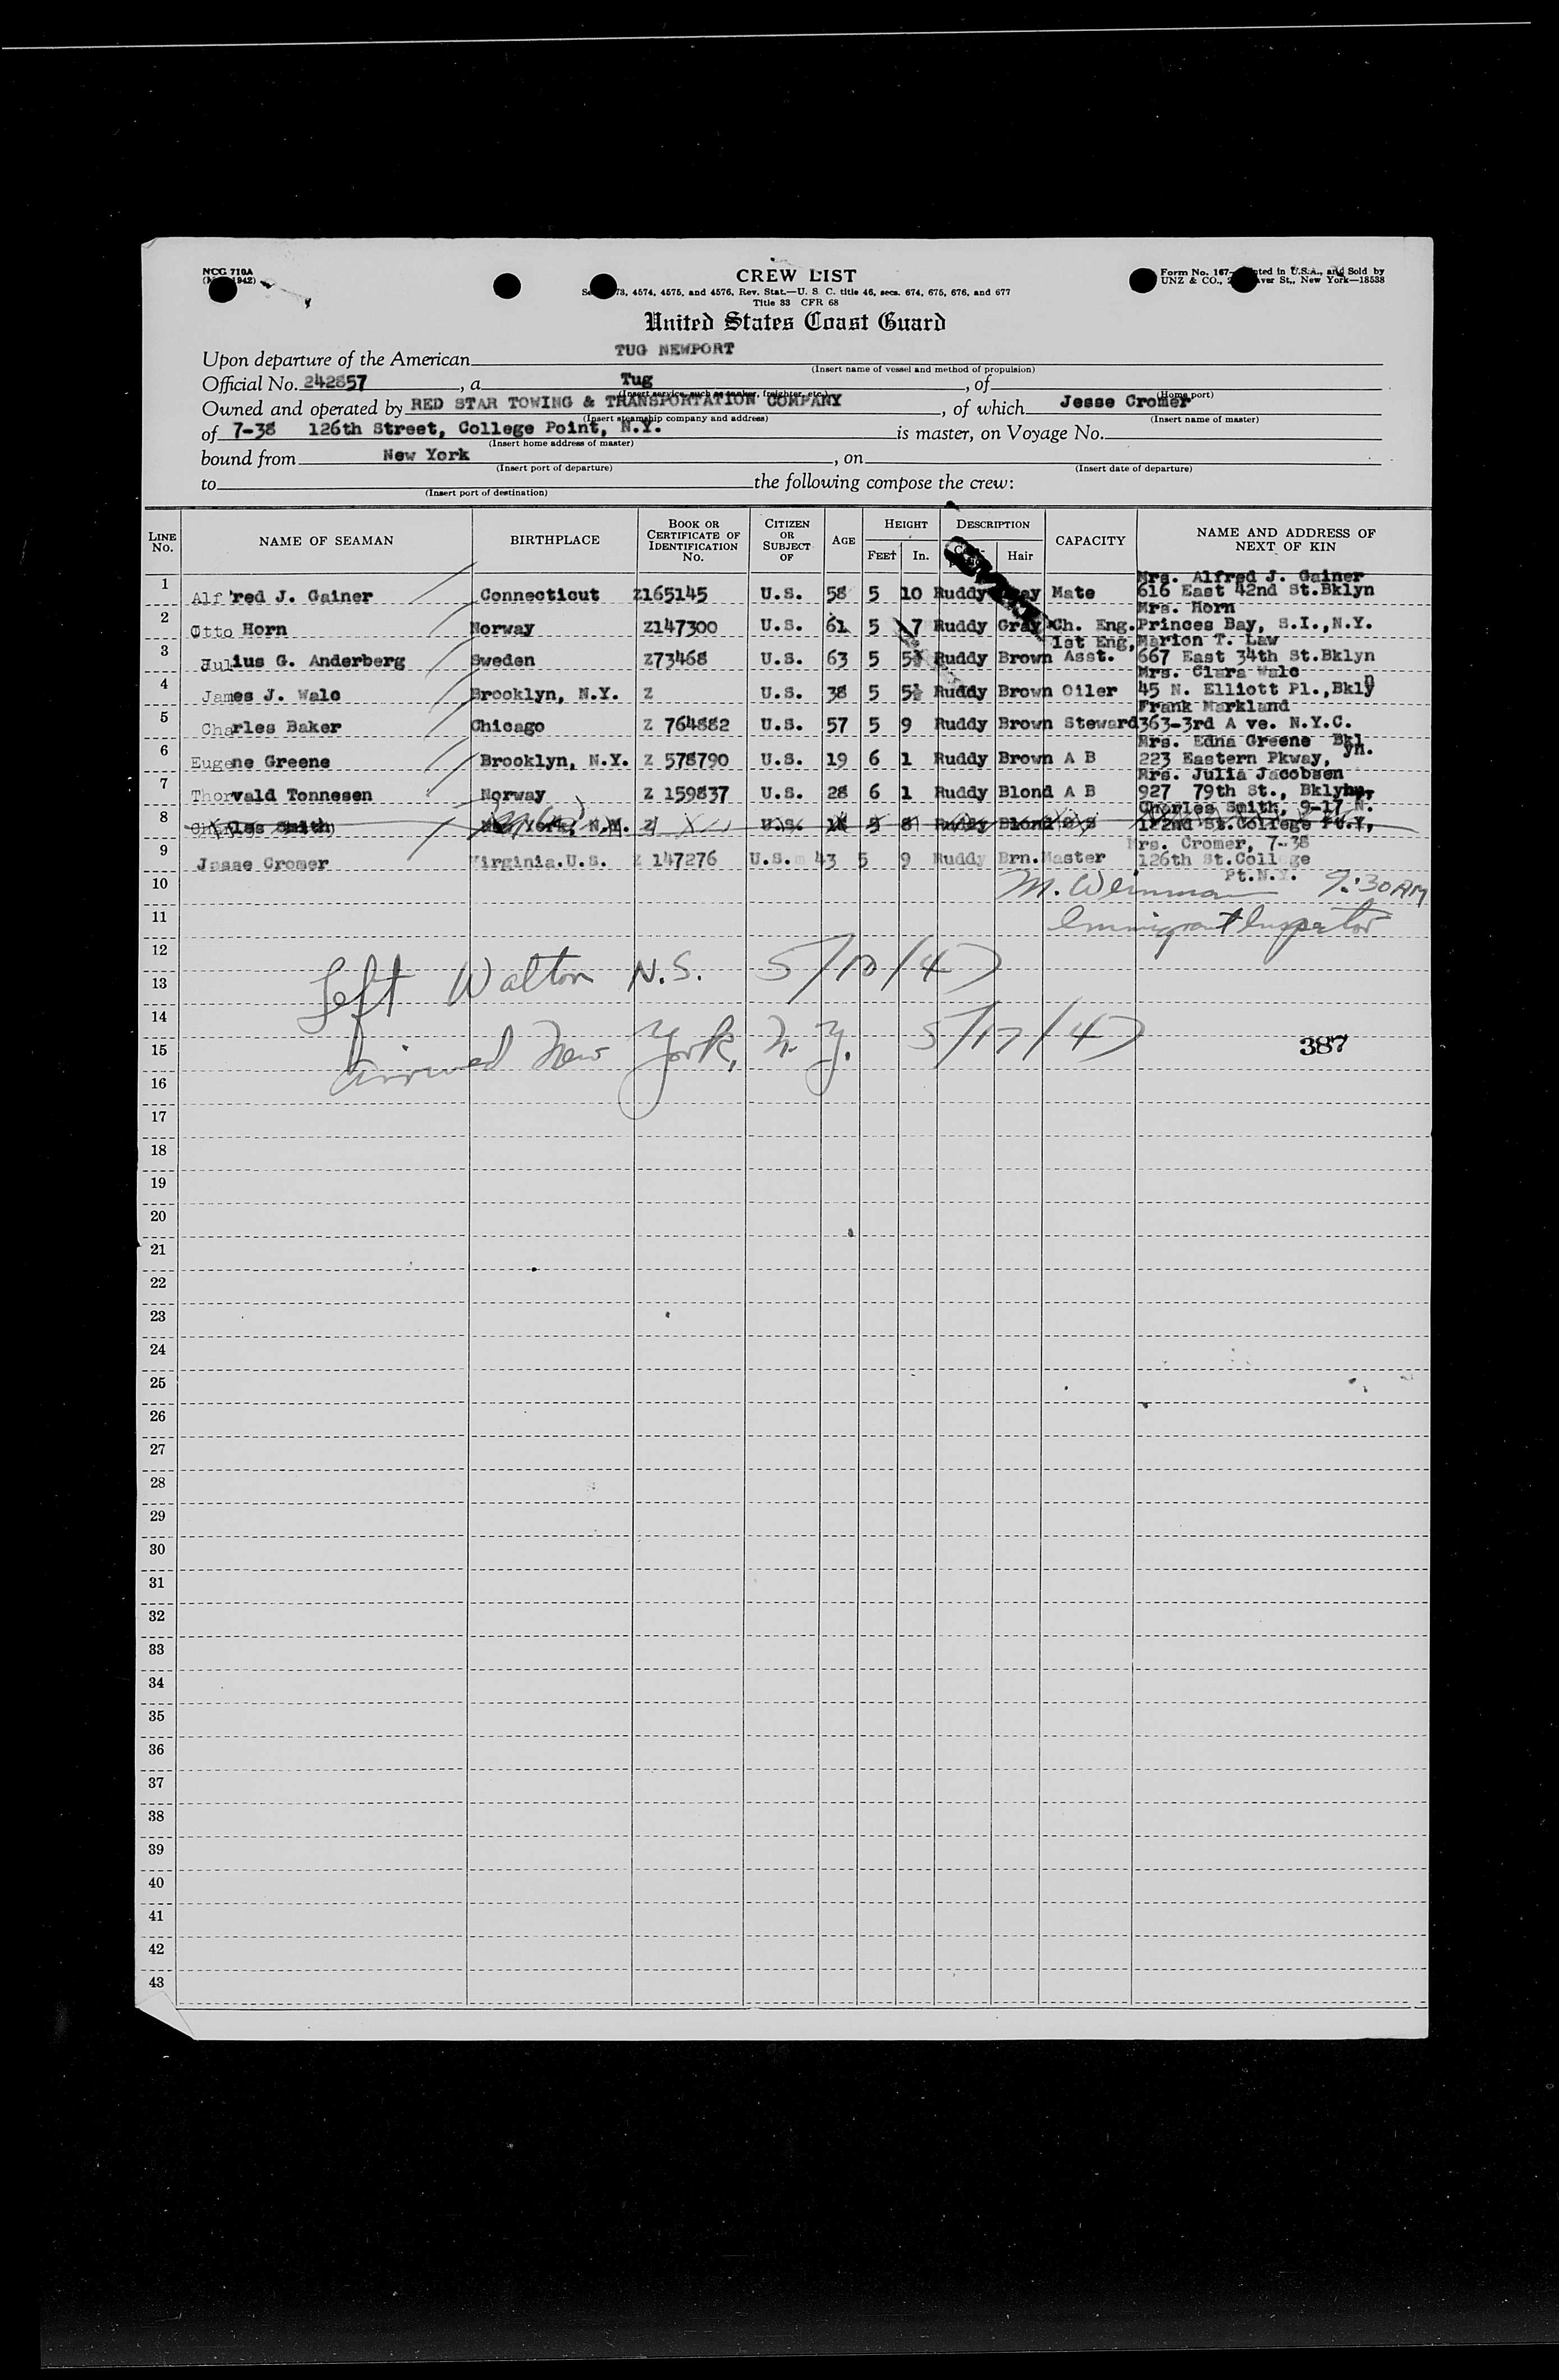 NCG 710A
CREW LIST
Form No. 167— Printed in U.S.A., and Sold by
UNZ & CO., St., New York—18538
4574, 4575, and 4576, Rev. Stat.—U. S. C. title 46, secs. 674, 675, 676, and 677
Title 33 CFR 68
United States Coast Guard
Upon departure of the American TUG NEWPORT
(Insert name of vessel and method of propulsion)
Official No. 242857, a Tug, of
(Insert service, such as tanker, freighter, etc.) (Home port)
Owned and operated by RED STAR TOWING & TRANSPORTATION COMPANY, of which Jesse Cromer
(Insert steamship company and address) (Insert name of master)
of 7-38 126th Street, College Point, N.Y. is master, on Voyage No.
(Insert home address of master)
bound from New York, on
(Insert port of departure) (Insert date of departure)
to the following compose the crew:
(Insert port of destination)
LINE No. NAME OF SEAMAN BIRTHPLACE BOOK OR CERTIFICATE OF IDENTIFICATION No. CITIZEN OR SUBJECT OF AGE HEIGHT FEET In. DESCRIPTION Hair CAPACITY NAME AND ADDRESS OF NEXT OF KIN
Mrs. Alfred J. Gainer
1 Alf'red J. Gainer Connecticut Z165145 U.S. 58 5 10 Ruddy Gray Mate 616 East 42nd St.Bklyn
Mrs. Horn
2 Otto Horn Norway Z147300 U.S. 61 5 7 Ruddy Gray Ch. Eng. Princes Bay, S.I.,N.Y.
1st Eng, Marion T. Law
3 Julius G. Anderberg Sweden Z73468 U.S. 63 5 5½ Ruddy Brown Asst. 667 East 34th St.Bklyn
Mrs. Clara Walc
4 James J. Walc Brooklyn, N.Y. Z U.S. 38 5 5½ Ruddy Brown Oiler 45 N. Elliott Pl.,Bklyn
Frank Markland
5 Charles Baker Chicago Z 764882 U.S. 57 5 9 Ruddy Brown Steward 363-3rd A ve. N.Y.C.
Mrs. Edna Greene Bkl
6 Eugene Greene Brooklyn, N.Y. Z 578790 U.S. 19 6 1 Ruddy Brown A B 223 Eastern Pkway, yn.
Mrs. Julia Jacobsen
7 Thorvald Tonnesen Norway Z 159837 U.S. 28 6 1 Ruddy Blond A B 927 79th St., Bklyn
Charles Smith, 9-17 N.
8 Charles Smith New York, N.Y. Z U.S. 18 5 8 Ruddy Blond O S 122nd St.College Pt.Y,
Mrs. Cromer, 7-38
9 Jesse Cromer Virginia.U.S. Z 147276 U.S. 43 5 9 Ruddy Brn. Master 126th St.College
Pt.N.Y.
10 M. Weinman 9:30 AM
11 Immigrant Inspector
12
13 Left Walton N.S. 5/10/47
14
15 Arrived New York, N.Y. 5/17/47 387
16
17
18
19
20
21
22
23
24
25
26
27
28
29
30
31
32
33
34
35
36
37
38
39
40
41
42
43